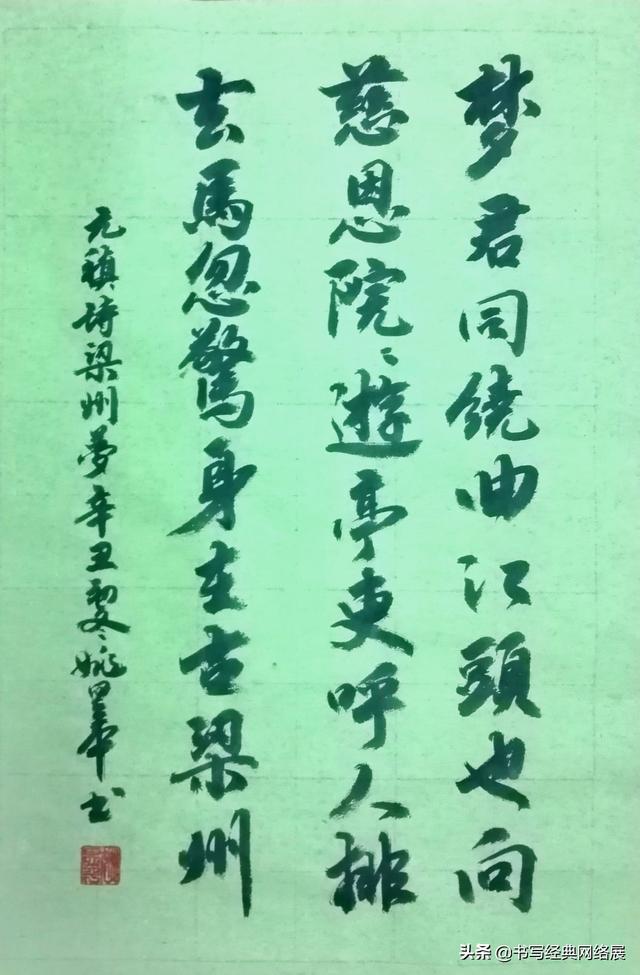 梦君同绕曲江頭也向
慈恩院〻遊亭吏呼人排
去馬忽驚身在古梁州
元稹诗梁州夢辛丑初夏姚书
头条 @书写经典网络展